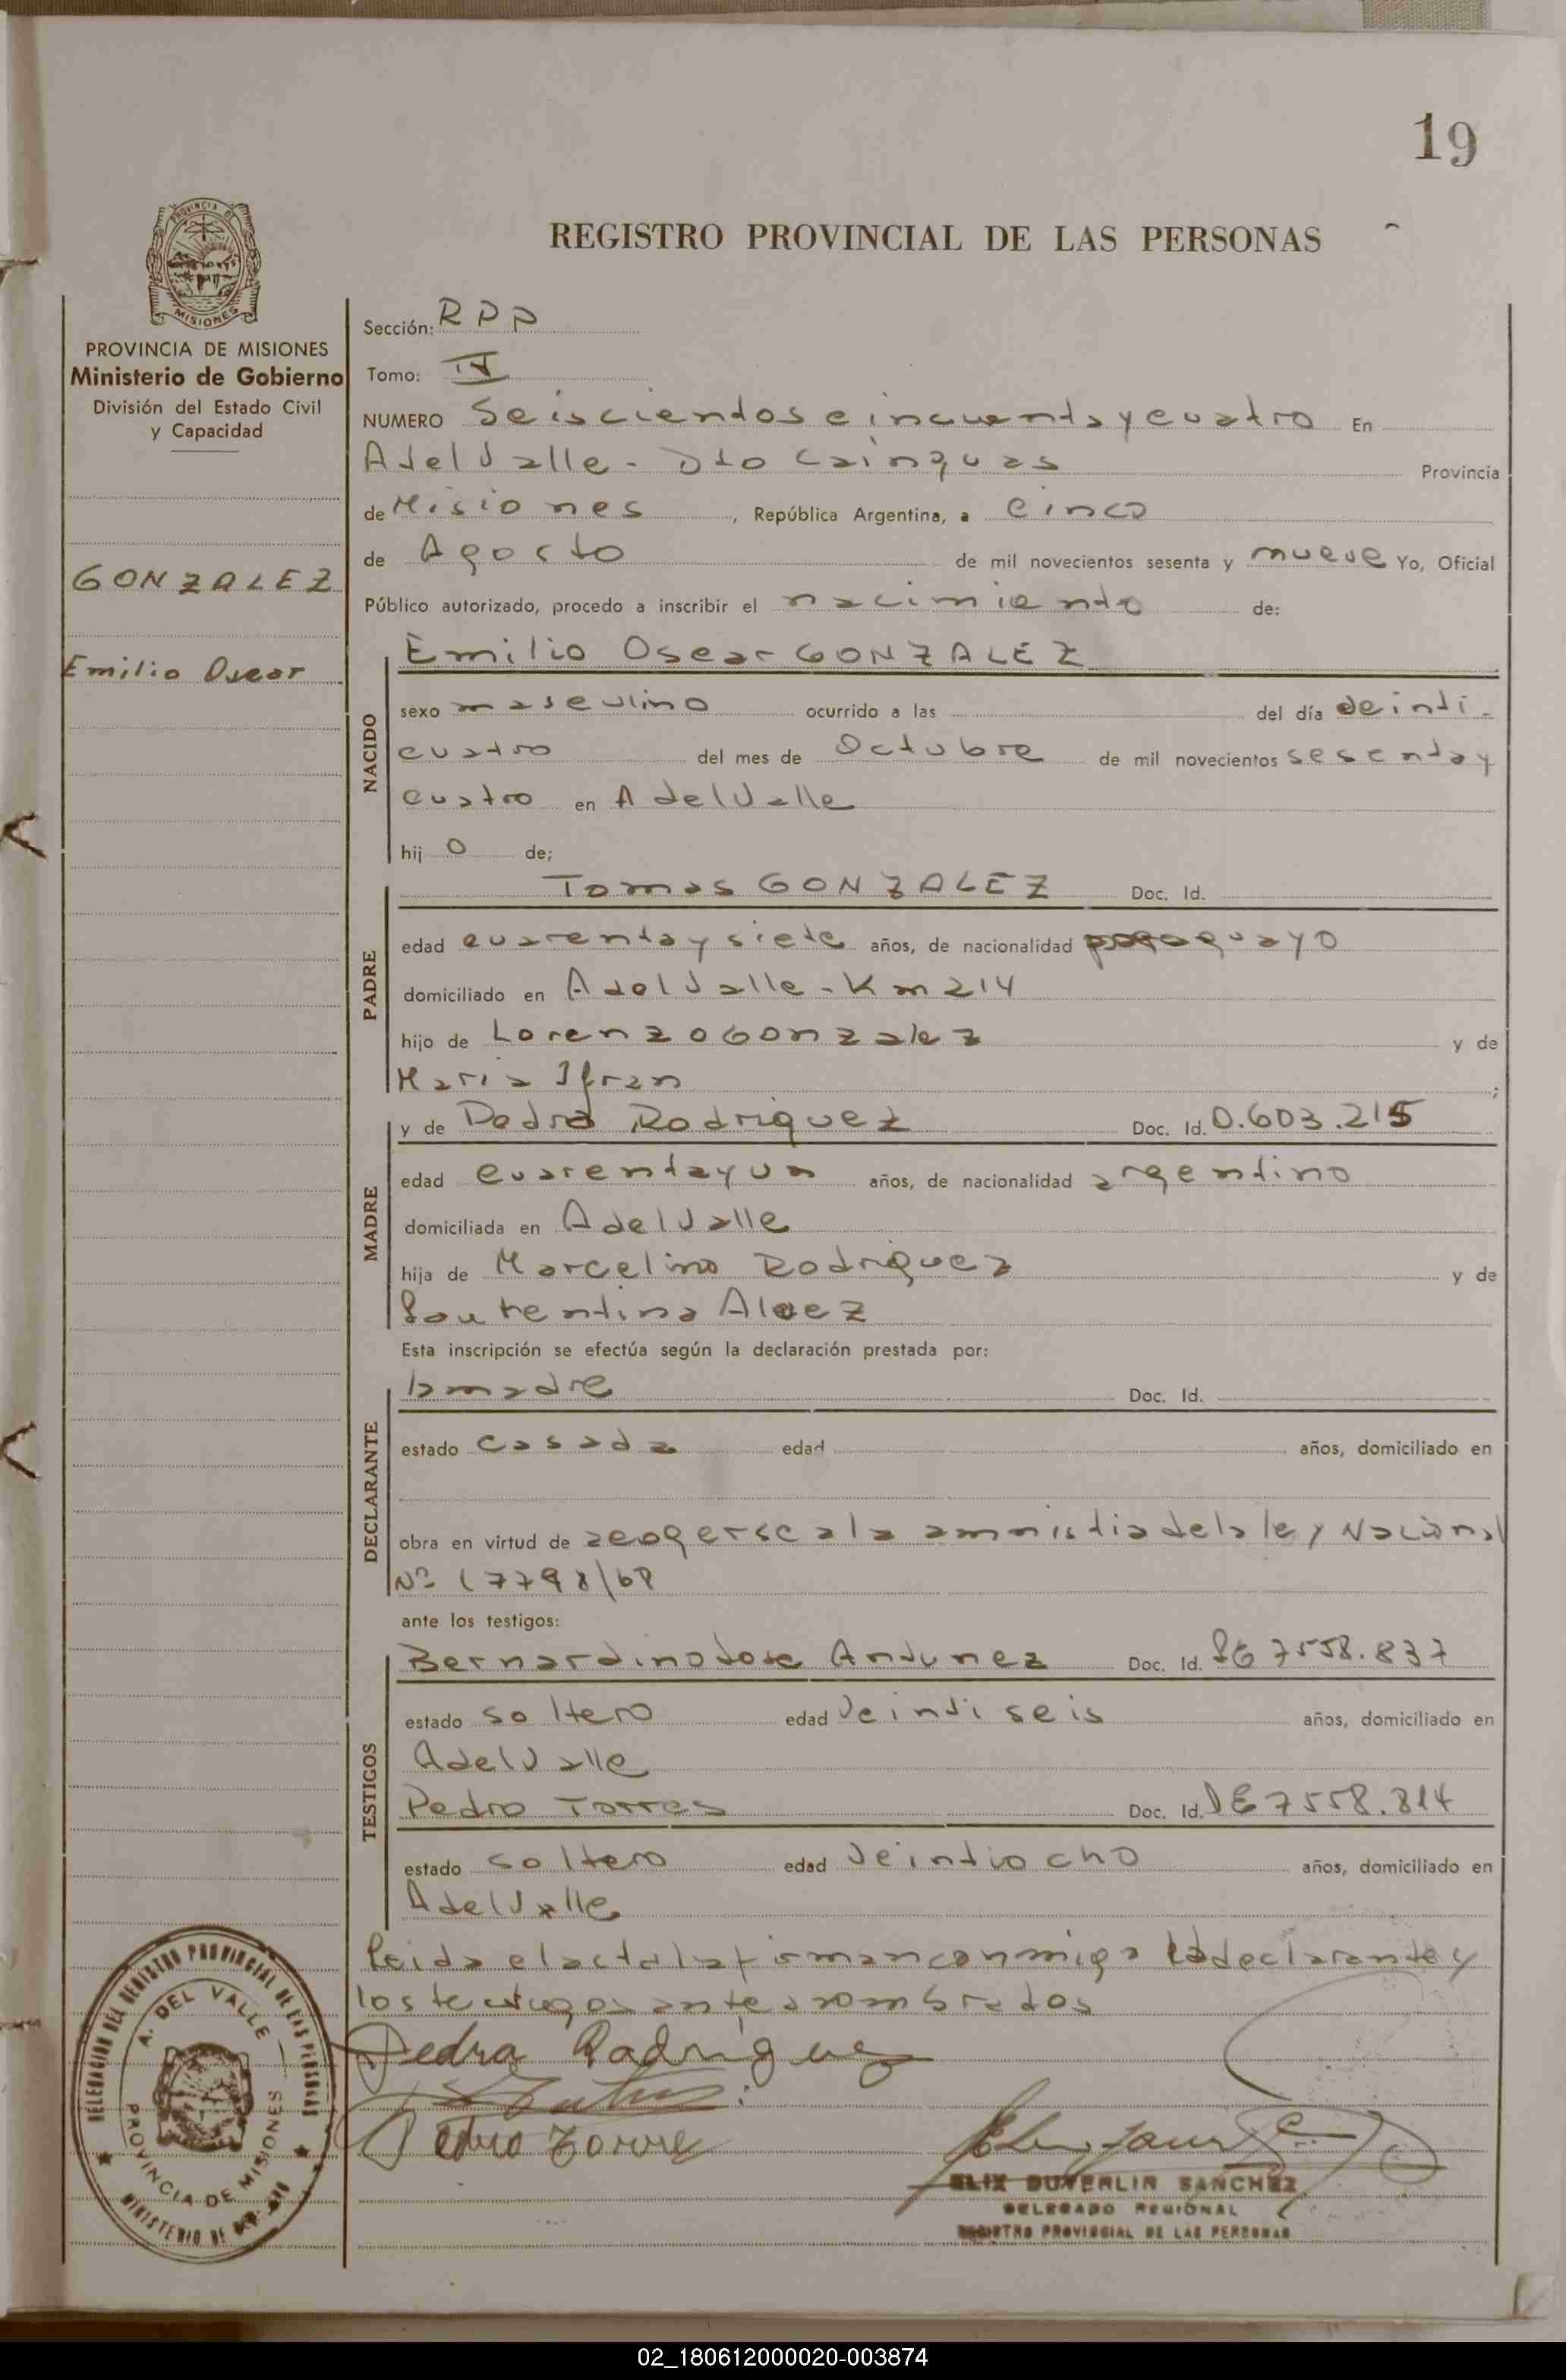 19
REGISTRO PROVINCIAL DE LAS PERSONAS
PROVINCIA DE MISIONES
Ministerio de Gobierno
División del Estado Civil
y Capacidad
GONZALEZ
Emilio Oscar
Sección: RPP
Tomo: IV
NUMERO Seiscientos cincuenta y cuatro En
A del Valle - Dto Cainguas Provincia
de Misiones, República Argentina, a cinco
de Agosto de mil novecientos sesenta y nueve Yo, Oficial
Público autorizado, procedo a inscribir el nacimiento de:
NACIDO
Emilio Oscar GONZALEZ
sexo masculino ocurrido a las del día veinti-
cuatro del mes de Octubre de mil novecientos sesenta y
cuatro en A del Valle
hij o de;
PADRE
Tomas GONZALEZ Doc. Id.
edad cuarenta y siete años, de nacionalidad paraguayo
domiciliado en A del Valle - Km 214
hijo de Lorenzo Gonzalez y de
Maria Ifran ;
MADRE
y de Pedra Rodriguez Doc. Id. 0.603.215
edad cuarenta y un años, de nacionalidad argentino
domiciliada en A del Valle
hija de Marcelino Rodriguez y de
Esta inscripción se efectúa según la declaración prestada por:
DECLARANTE
la madre Doc. Id.
estado casada edad años, domiciliado en
obra en virtud de acogerse a la amnistia de la ley Nacional
Nº 17798/68
ante los testigos:
TESTIGOS
Bernardino Jose Antunez Doc. Id. LE 7558.837
estado soltero edad Veintiseis años, domiciliado en
A del Valle
Pedro Torres Doc. Id. LE 7558.814
estado soltero edad Veintiocho años, domiciliado en
A del Valle
Leida el acta la firman conmigo la declarante y
los testigos antes nombrados
Pedra Rodriguez
Pedro Torre
DELEGACION DEL REGISTRO PROVINCIAL DE LAS PERSONAS
A. DEL VALLE
PROVINCIA DE MISIONES
MINISTERIO DE
ELIX DUVERLIN SANCHEZ
DELEGADO REGIONAL
REGISTRO PROVINCIAL DE LAS PERSONAS
02_180612000020-003874